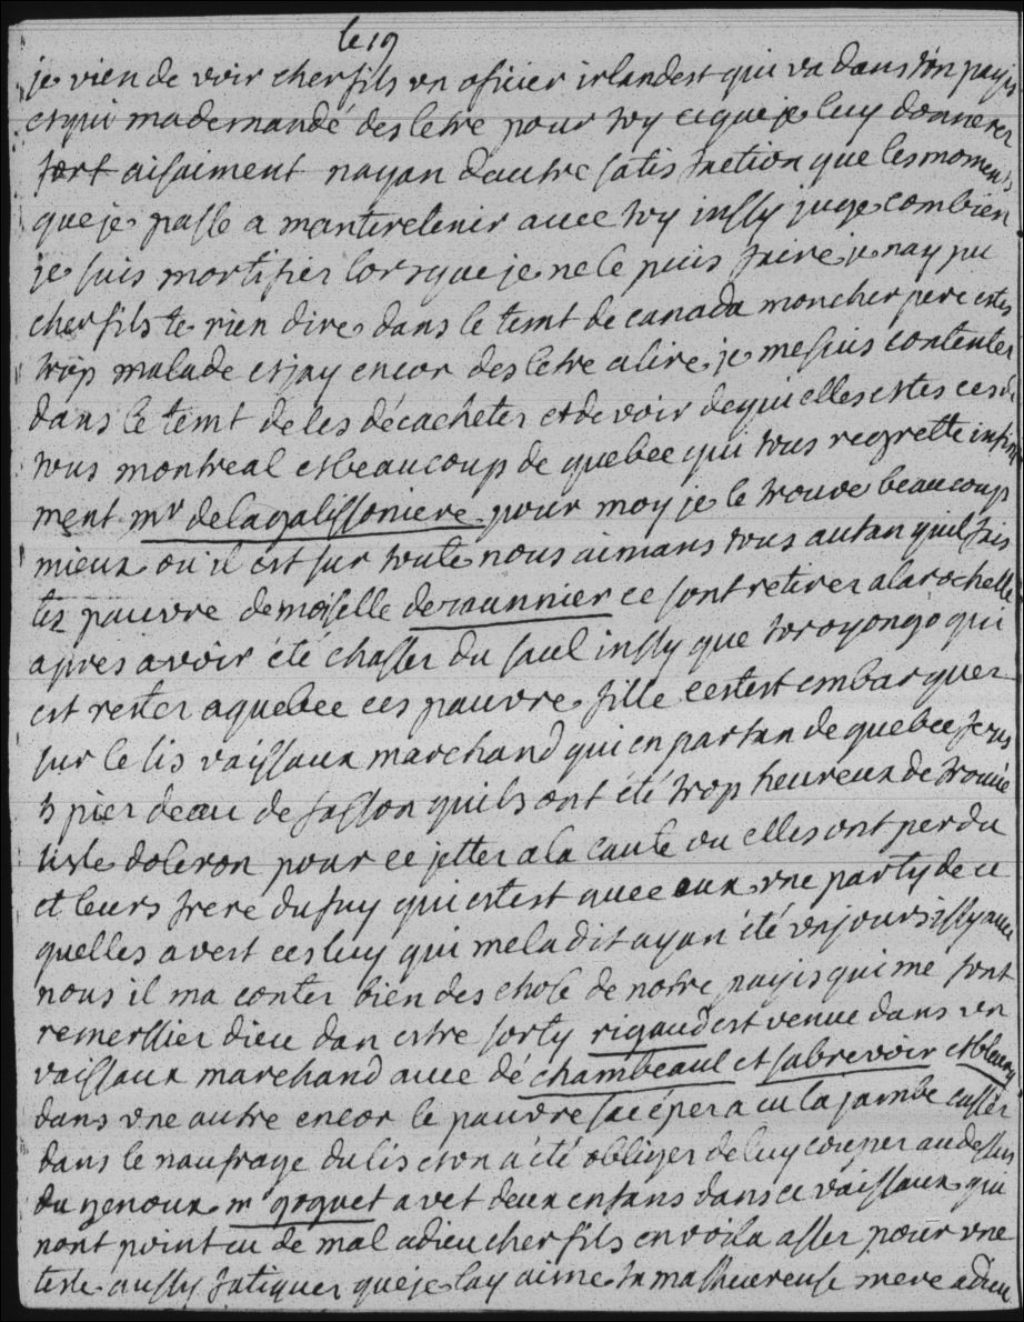 le 19
je vien de voir cher fils un oficier irlandest qui va dans ton payis
et qui ma demandé des letre pour toy ce que je luy donnerer
fort aisaiment nayan dautre satisfaction que les moments
que je passe a mentretenir avec toy inssy juge combien
je suis mortifier lorsque je ne le puis faire je nay pu
cher fils te rien dire dans le temt de canada mon cher pere estes
trop malade et jay encor des letre a lire je me suis contenter
dans le temt de les décacheter et de voir de qui elles estes ces di
tous montreal et beaucoup de quebec qui tous regrette infini
ment mr de la galissoniere pour moy je le trouve beaucoup
mieux ou il est sur toute nous aimans tous autan quil fais
tez pauvre demoiselle deraunnier ce sont retirer a la rochelle
apres avoir été chasser du saul inssy que troyongo qui
est rester a quebec ces pauvre fille cestest embarquer
sur le lis vaissaux marchand qui en partan de quebec
5 pier deau de fasson quils ont été trop heureux de trouvé
lisle doleron pour ce jetter a la caute ou elles ont perdu
et leurs frere dufuy qui estest avec eux une party de ce
quelles avest ces luy qui me la dit ayan été un jours issy avec
nous il ma conter bien des chose de notre payis qui me font
remerssier dieu dan estre sorty rigaud est venue dans un
vaissaux marchand avec dé chambeaul et sabrevoir et bleury
dans une autre encor le pauvre sacéper a cu la jambe casser
dans le naufrage du lis et on a été obliger de luy couper au dessus
du genoux mr goguet avet deux enfans dans ce vaissaux qui
nont point eu de mal adieu cher fils en voila asser pour une
teste aussy fatiguer que je lay aime ta malheureuse mere adieu